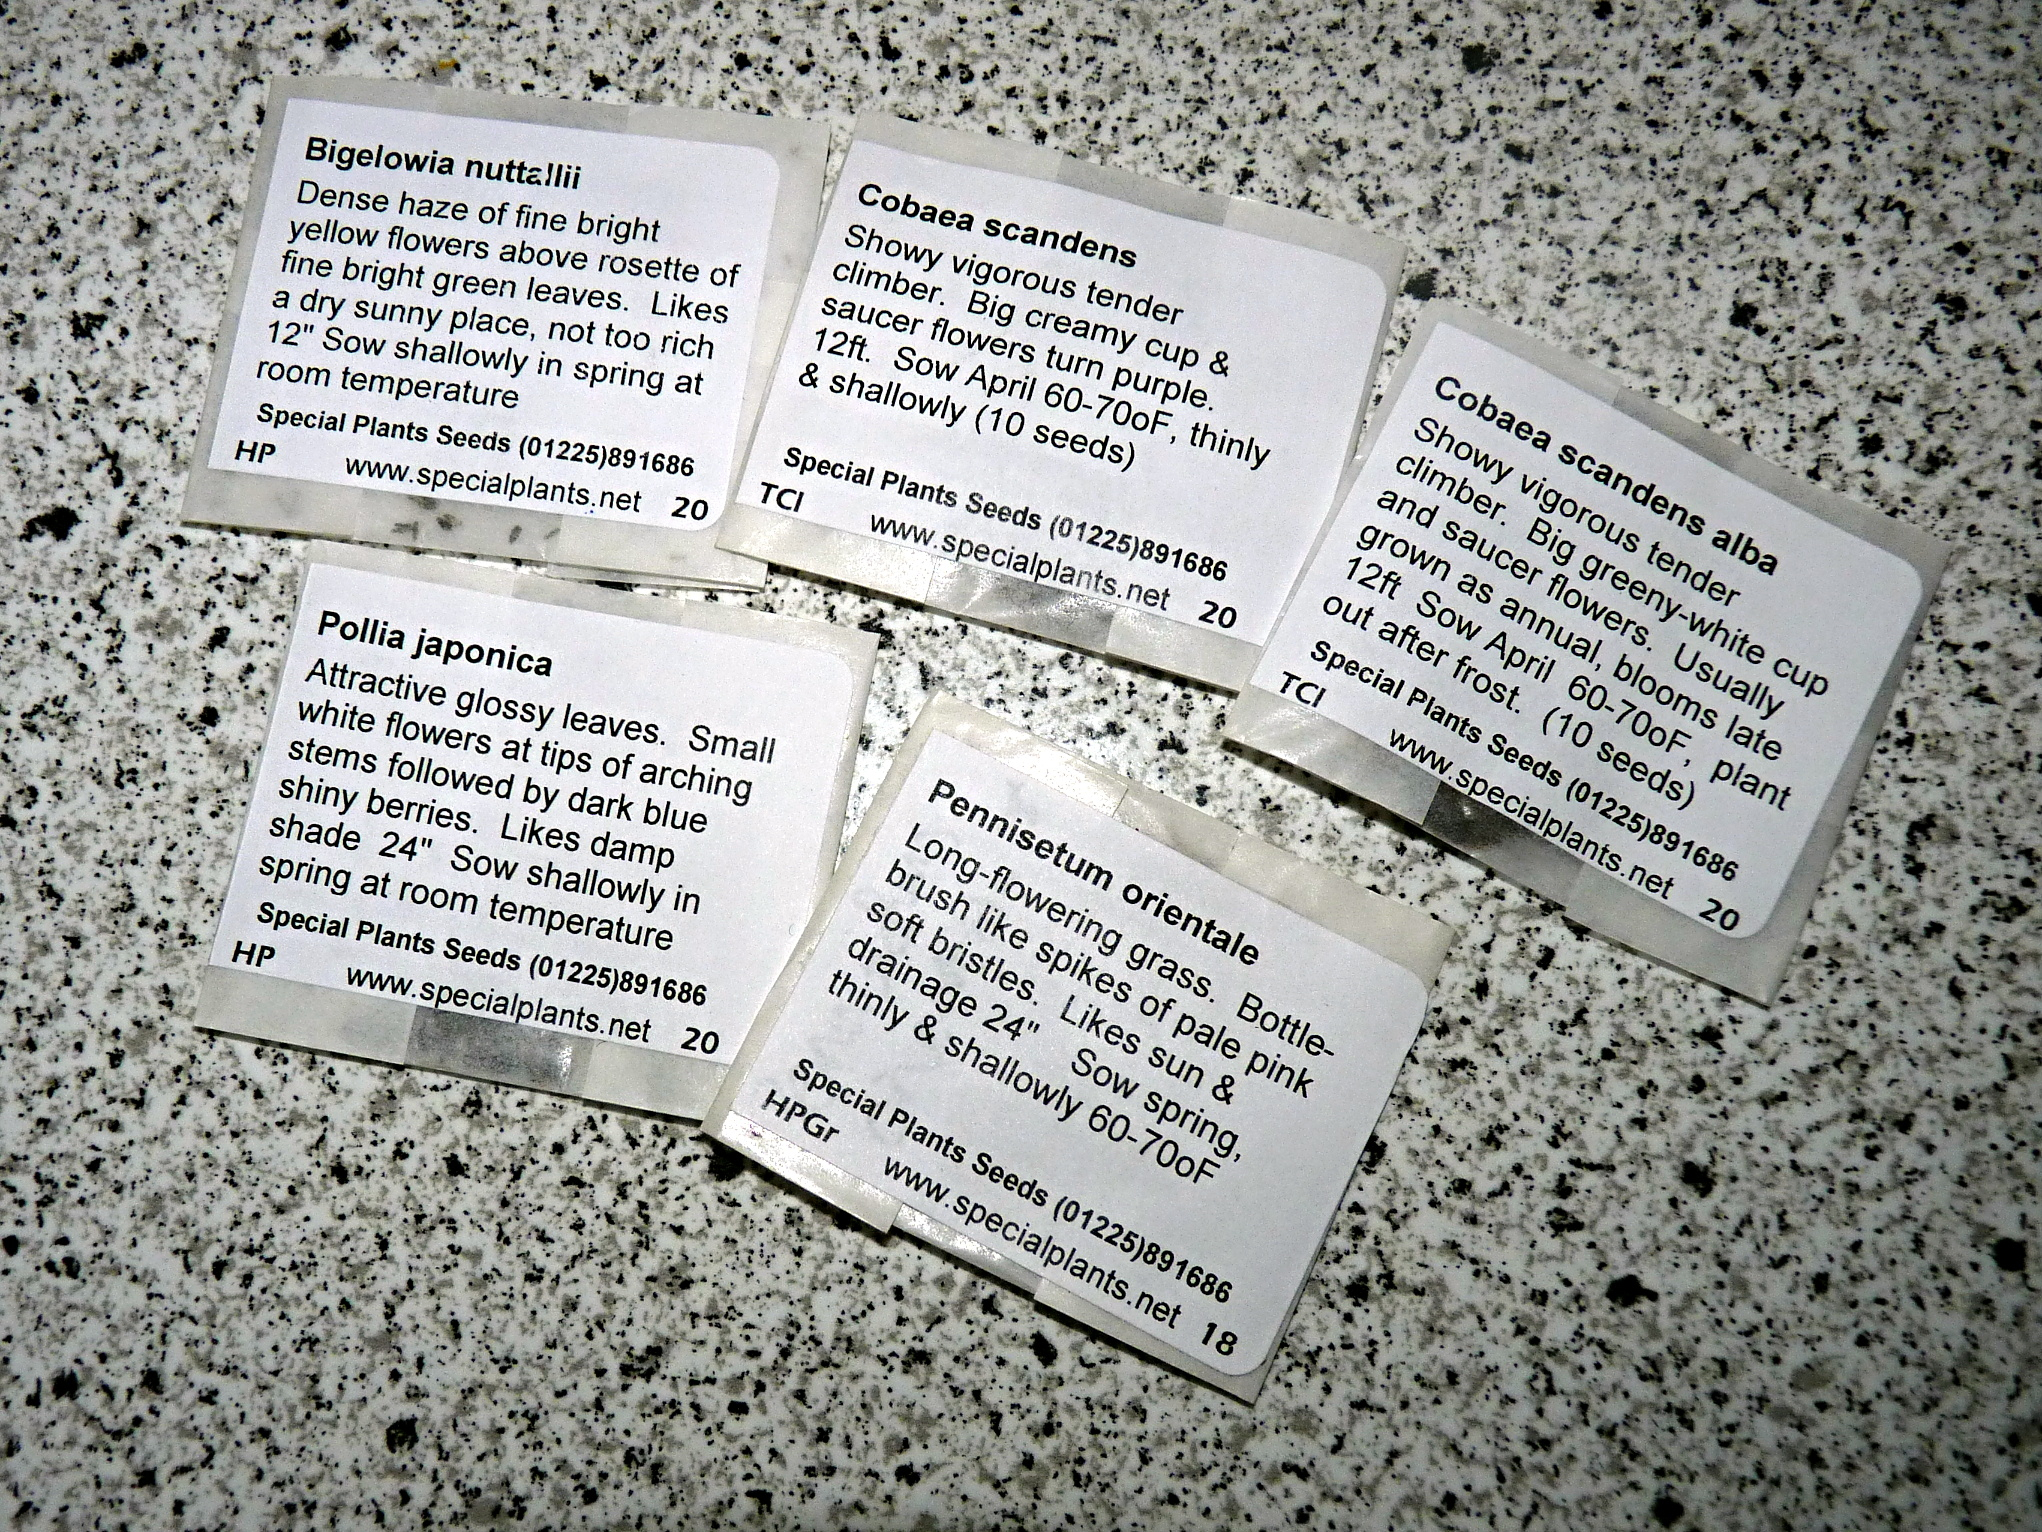 Bigelowia nuttallii
Dense haze of fine bright
yellow flowers above rosette of
fine bright green leaves.  Likes
a dry sunny place, not too rich
12" Sow shallowly in spring at
room temperature
Special Plants Seeds (01225)891686
HP www.specialplants.net 20
Cobaea scandens
Showy vigorous tender
climber.  Big creamy cup &
saucer flowers turn purple.
12ft.  Sow April 60-70oF, thinly
& shallowly (10 seeds)
Special Plants Seeds (01225)891686
TCl www.specialplants.net 20
Cobaea scandens alba
Showy vigorous tender
climber.  Big greeny-white cup
and saucer flowers.  Usually
grown as annual, blooms late
12ft  Sow April  60-70oF,  plant
out after frost.  (10 seeds)
Special Plants Seeds (01225)891686
TCl www.specialplants.net 20
Pollia japonica
Attractive glossy leaves.  Small
white flowers at tips of arching
stems followed by dark blue
shiny berries.  Likes damp
shade  24"  Sow shallowly in
spring at room temperature
Special Plants Seeds (01225)891686
HP www.specialplants.net 20
Pennisetum orientale
Long-flowering grass.  Bottle-
brush like spikes of pale pink
soft bristles.  Likes sun &
drainage 24"   Sow spring,
thinly & shallowly 60-70oF
Special Plants Seeds (01225)891686
HPGr www.specialplants.net 18